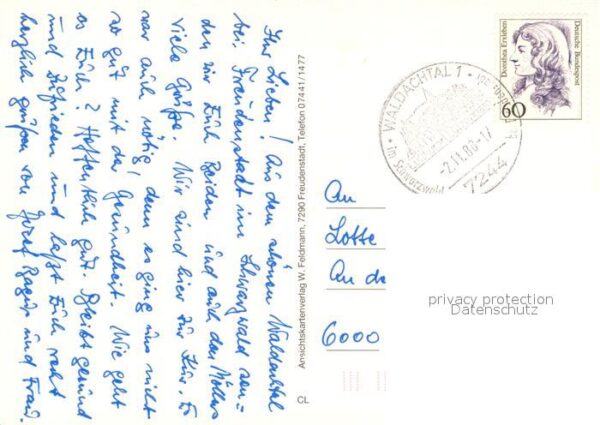 Ihr Lieben! Aus dem schönen Waldachtal
bei Freudenstadt im Schwarzwald sen-
den wir Euch Beiden und auch den Möllers
viele Grüße. Wir sind hier zur Kur. Es
war auch nötig, denn es ging uns nicht
so gut mit der Gesundheit. Wie geht
es Euch? Hoffentlich gut. Bleibt gesund
und zufrieden und laßt Euch recht
herzlich grüßen von Josef und Frau.
Ansichtskartenverlag W. Feldmann, 7290 Freudenstadt, Telefon 07441/1477
CL
Dorothea Erxleben
Deutsche Bundespost
60
WALDACHTAL 1
im Schwarzwald
-2.11.88-17
7244
An
Lotte
An de
6000
privacy protection
Datenschutz